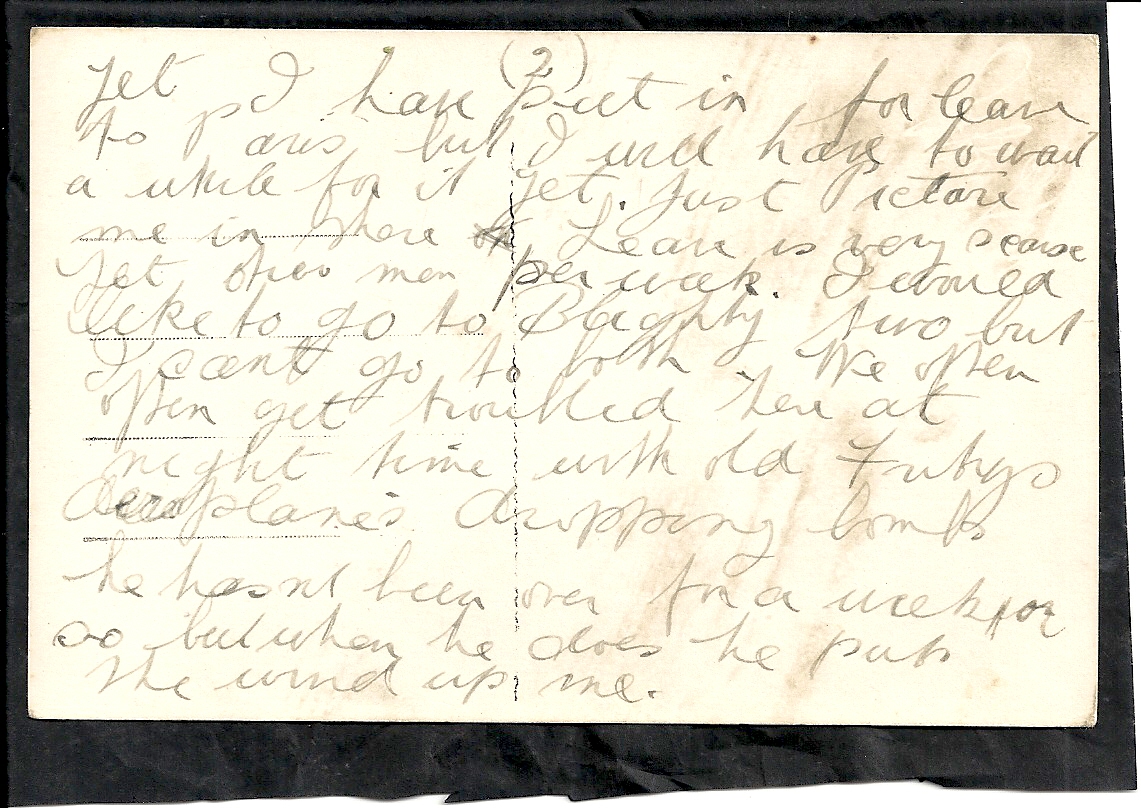 (2)
yet I have put in for leave
to paris but I will have to wait
a while for it yet. Just Picture
me in there Leave is very scarse
yet men per week. I would
like to go to Blaghty two but
I cant go to both. We often
often get troubled here at
night time with old Fritzys
aeroplanes dropping bombs
he hasnt been over for a week or
so but when he does he puts
the wind up me.